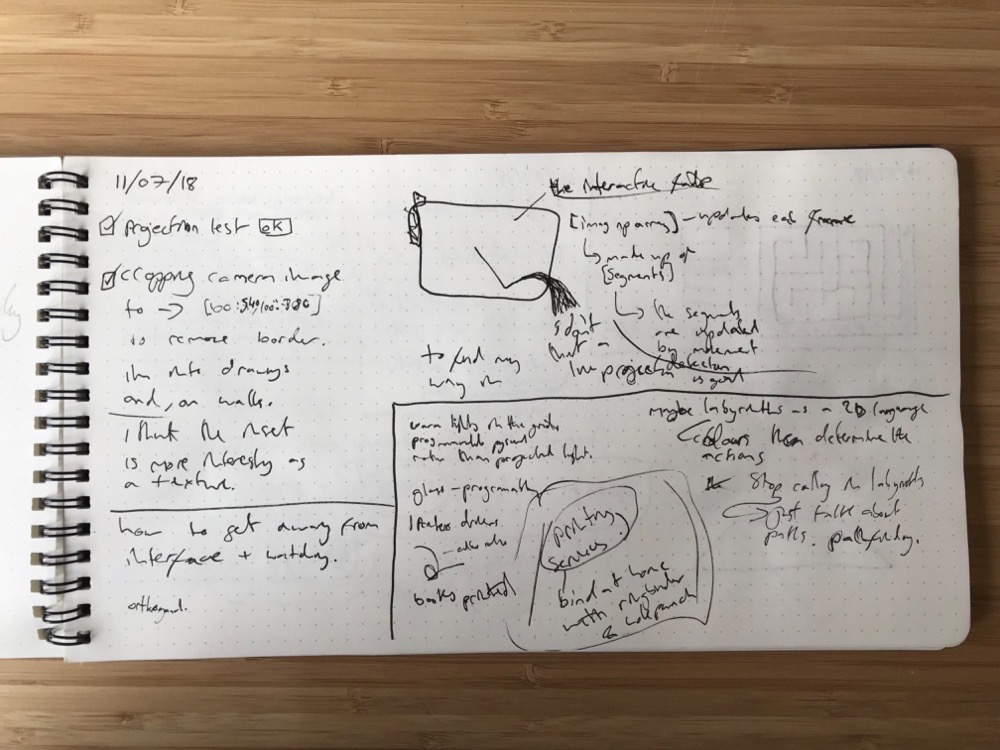 11/07/18
projection test OK
cropping camera image
to → [60:540,100:780]
is remove border.
and, on walls.
I think the reset
is more interesting as
a texture.
how to get away from
interface +
orthogonal.
the interactive table
[img np array] - updates each frame
made up of
[segments]
the segments
are updated
by movement
detection
is good
to find my
way in
that a
projection
warm lights in the garden
programmable
rather than projected light.
glass - programmable
books printed
printing
services
bind at home
with ringbinder
& holepunch
maybe labyrinths as a 2D language
Colours then determine the
actions
Stop calling them labyrinths
just talk about
paths. pathfinding.